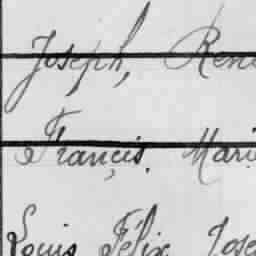 Joseph, René
Francis. Marie
Louis Félix Jose